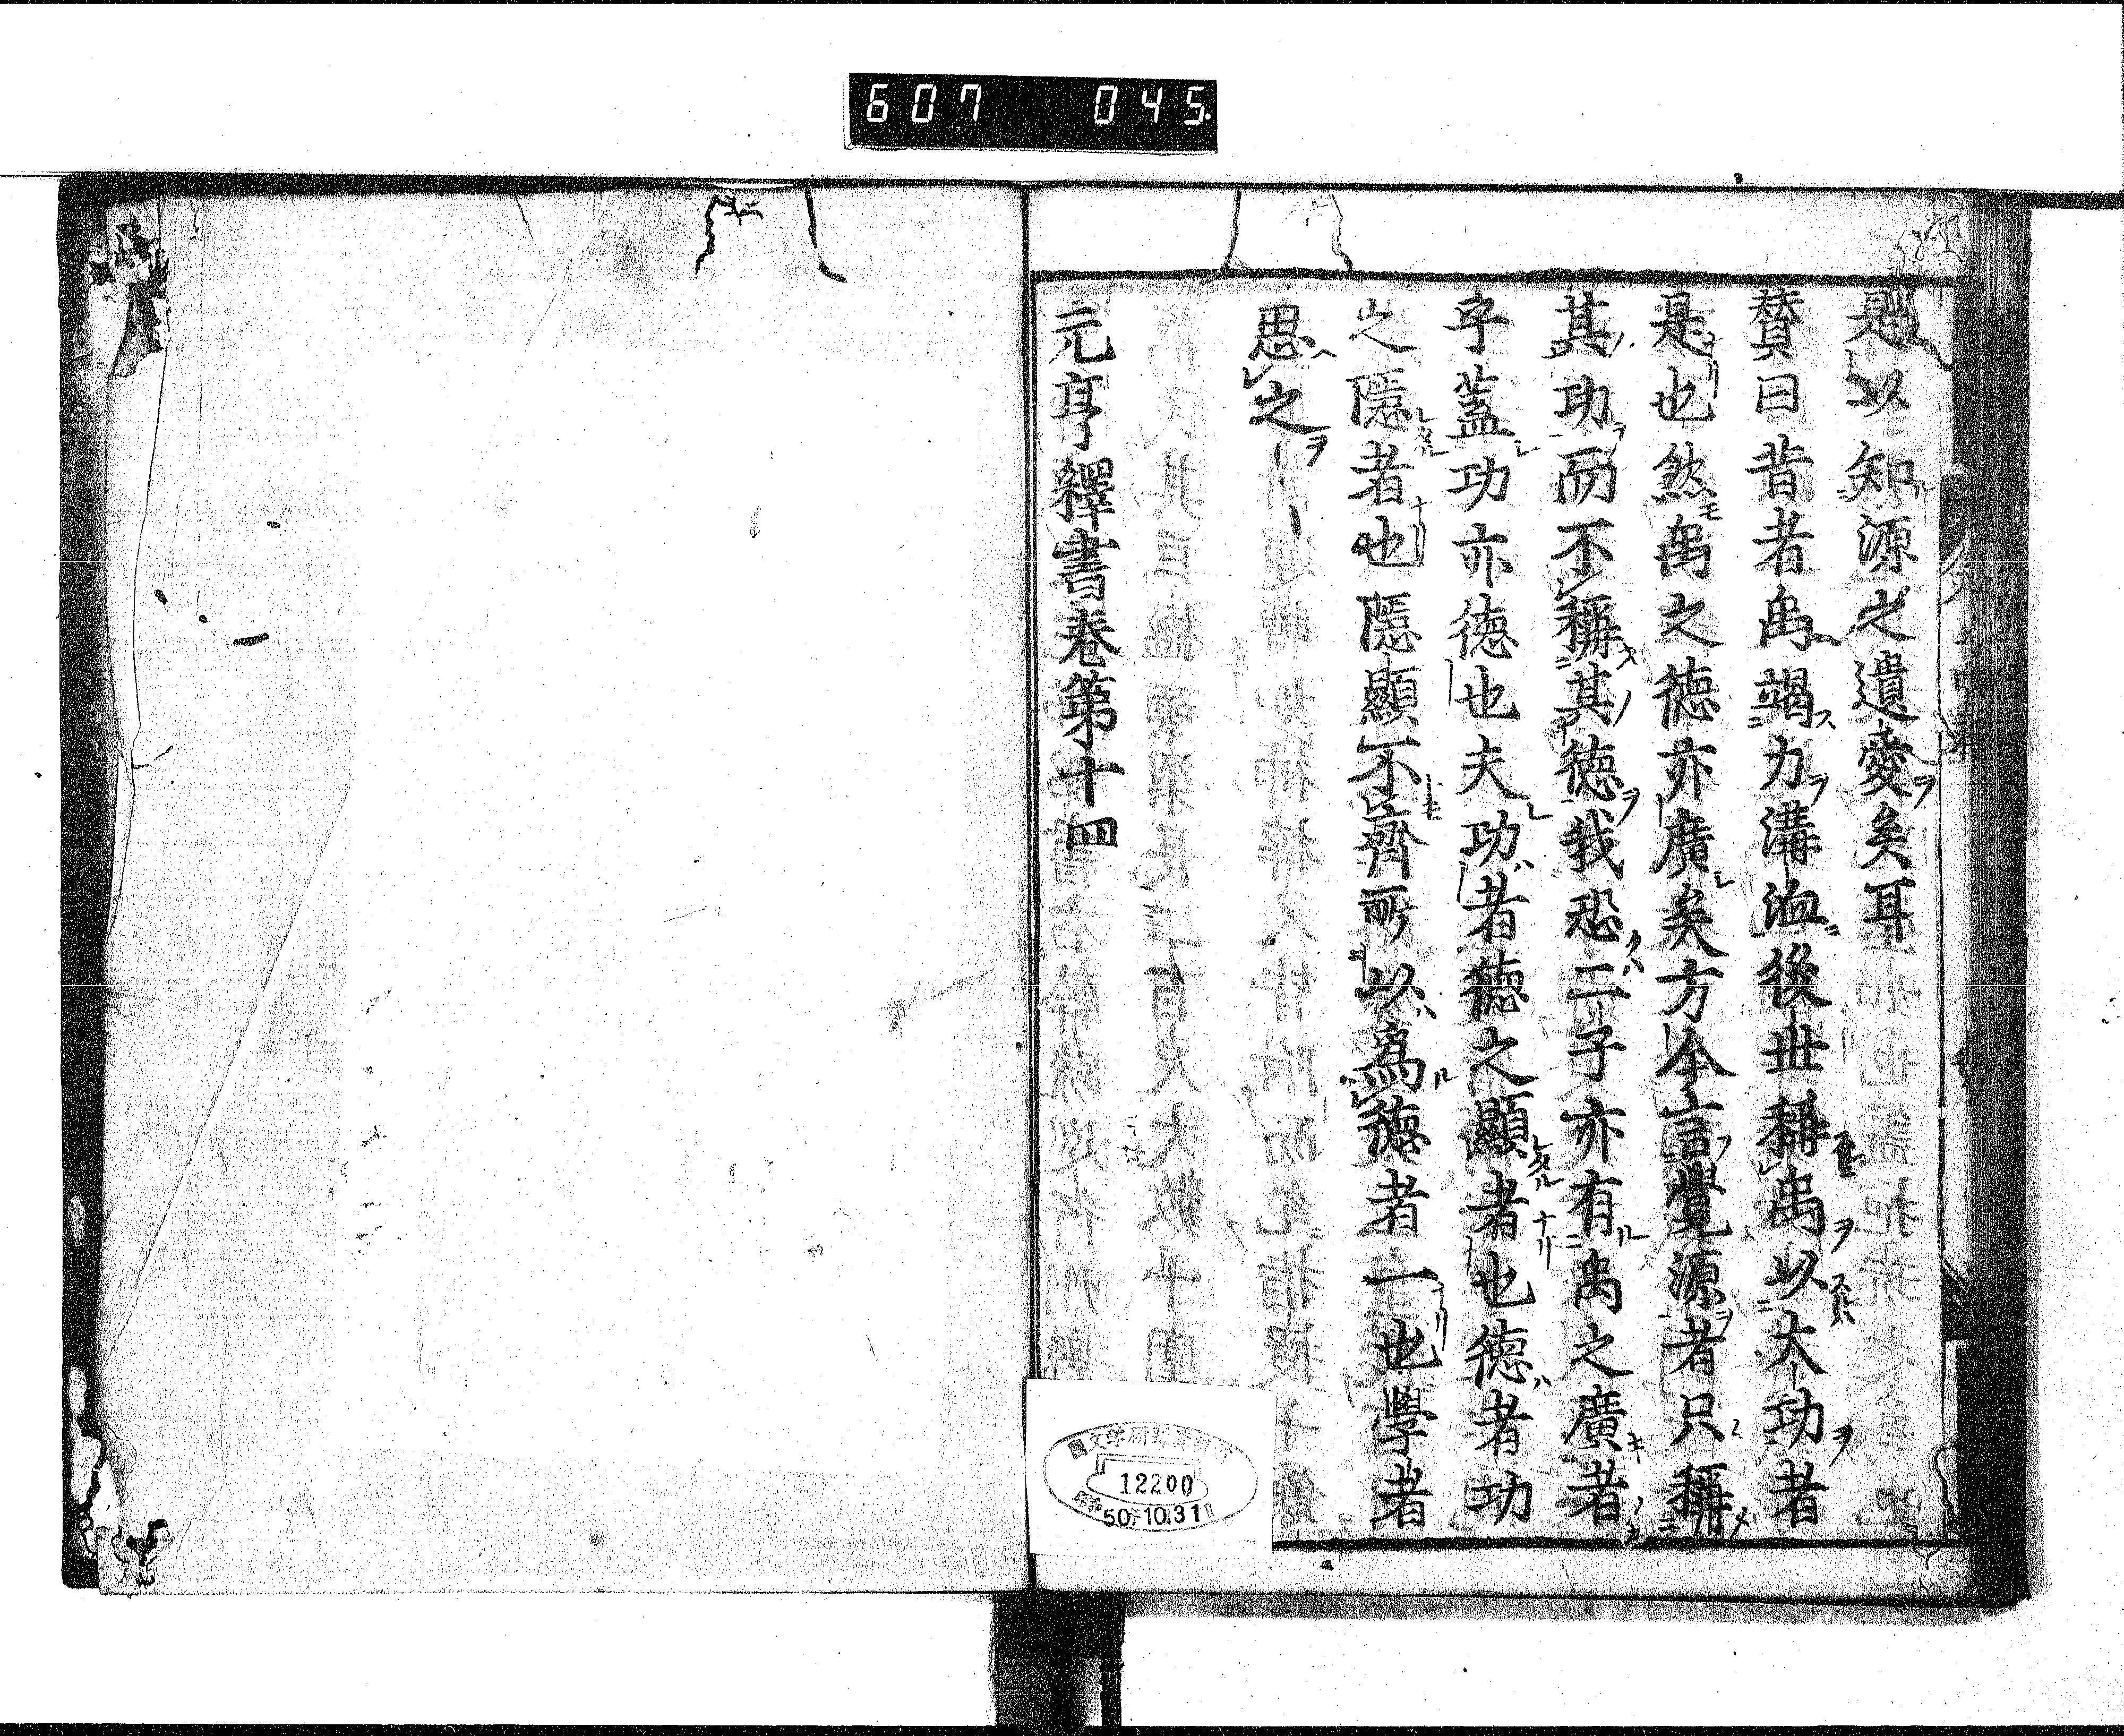 607 045
是以知源之遺愛矣耳
賛曰昔者禹竭力溝洫後世稱禹以大功者
是也然禹之德亦廣矣方今言覺源者只稱
其功而不稱其德我恐二子亦有禹之廣者
乎蓋功亦德也夫功者德之顯者也德者功
之隱者也隱顯不齊所以爲德者一也學者
思之
元亨釋書卷第十四
12200
50.10.31